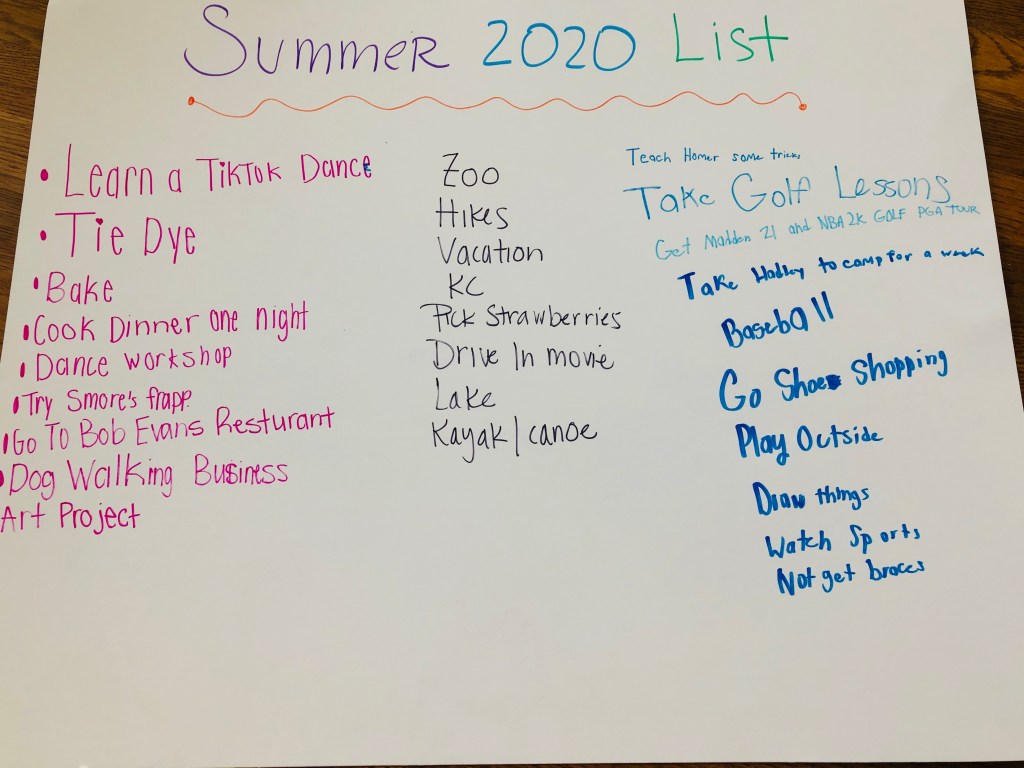 Summer 2020 List
• Learn a TikTok Dance
• Tie Dye
• Bake
• Cook Dinner one night
• Dance workshop
• Try Smore's frapp
• Go To Bob Evans Resturant
• Dog Walking Business
Art Project
Zoo
Hikes
Vacation
KC
Pick Strawberries
Drive In movie
Lake
Kayak/canoe
Teach Homer some tricks
Take Golf Lessons
Get Madden 21 and NBA2K GOLF PGA TOUR
Take Hadley to camp for a week
Baseball
Go Shoe Shopping
Play Outside
Draw things
Watch Sports
Not get braces